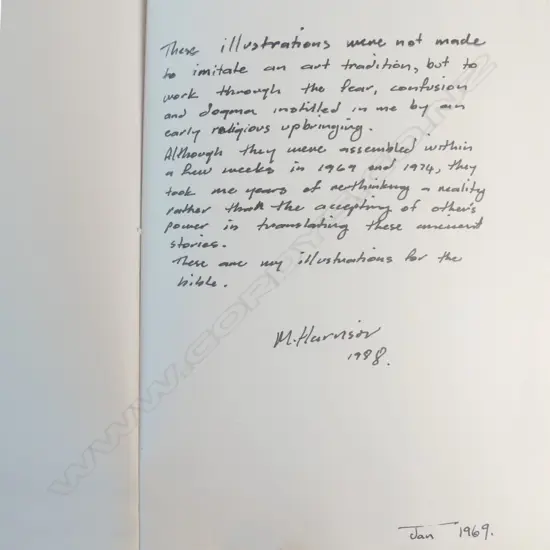 These illustrations were not made
to imitate an art tradition, but to
work through the fear, confusion
and dogma instilled in me by an
early religious upbringing.
Although they were assembled within
a few weeks in 1969 and 1974, they
took me years of rethinking a reality
rather than the accepting of other's
power in translating these ancient
stories.
These are my illustrations for the
bible.
M. Harrison
1988.
Jan 1969.